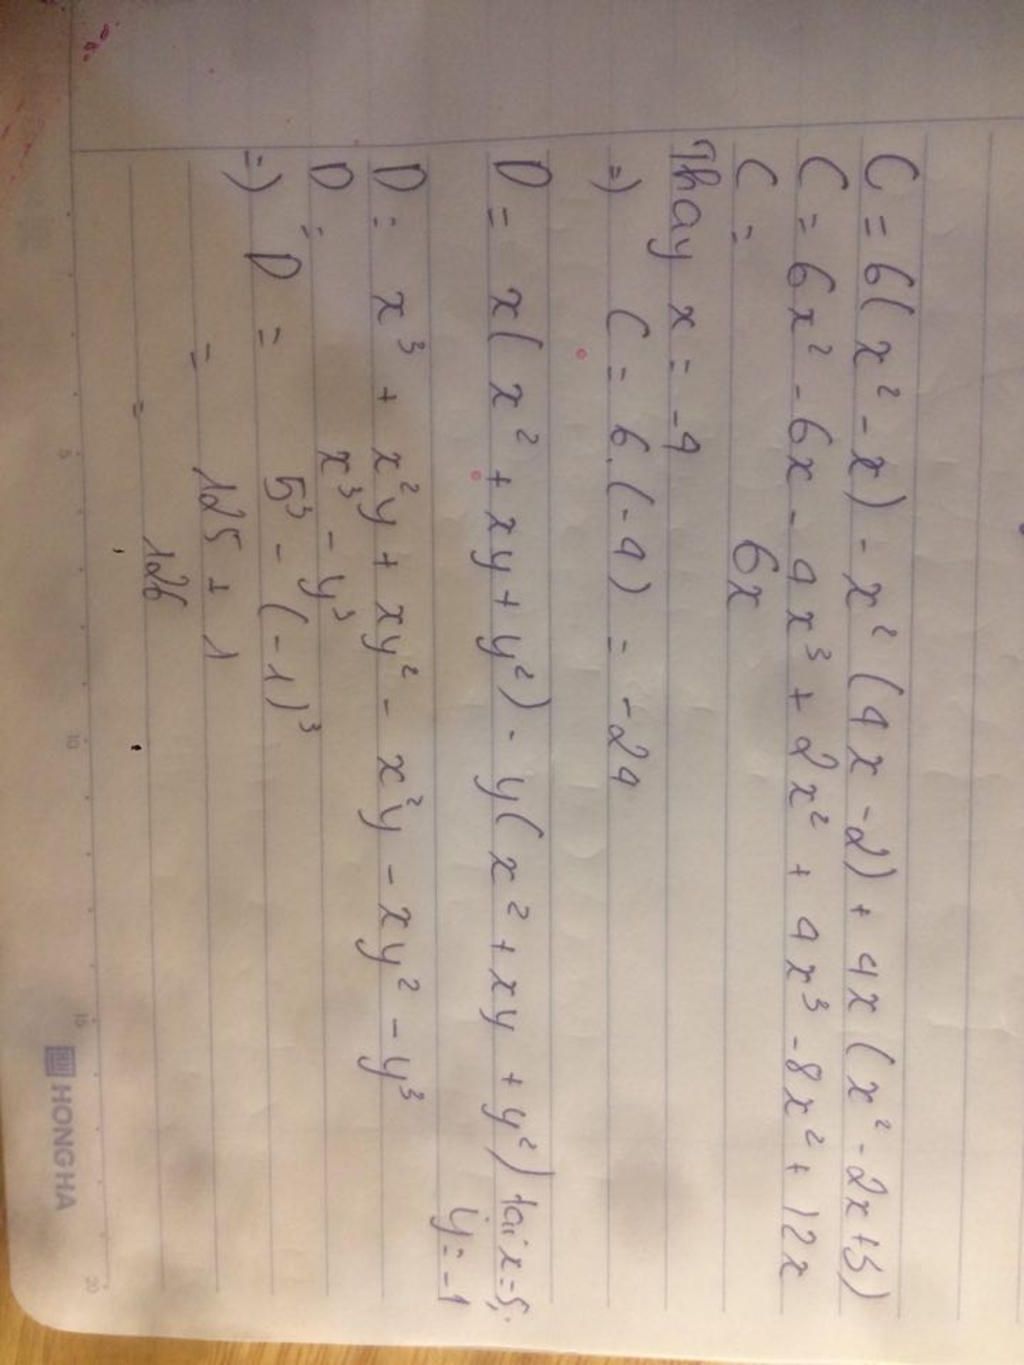 C = 6(x² - x) - x²(4x - 2) + 4x(x² - 2x + 3)
C = 6x² - 6x - 4x³ + 2x² + 4x³ - 8x² + 12x
C = 6x
Thay x = -4
=) C = 6.(-4) = -24
D = x(x² + xy + y²) - y(x² + xy + y²) tại x = 5;
y = -1
D = x³ + x²y + xy² - x²y - xy² - y³
D = x³ - y³
=) D = 5³ - (-1)³
= 125 + 1
= 126
5 10 15 20
HONG HA